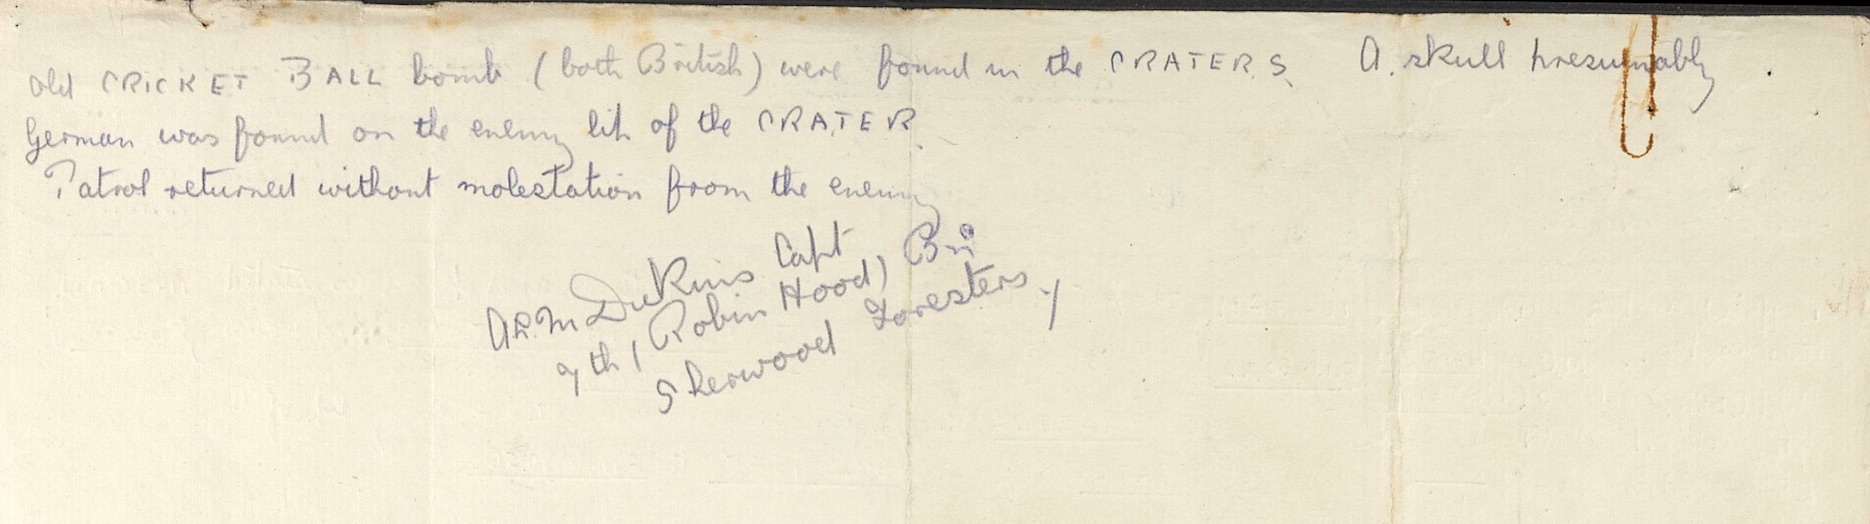 old CRICKET BALL bomb (both British) were found in the CRATERS. A. skull presumably
German was found on the enemy lip of the CRATER.
Patrol returned without molestation from the enemy
Capt
7th (Robin Hood) Bn
Sherwood Foresters.